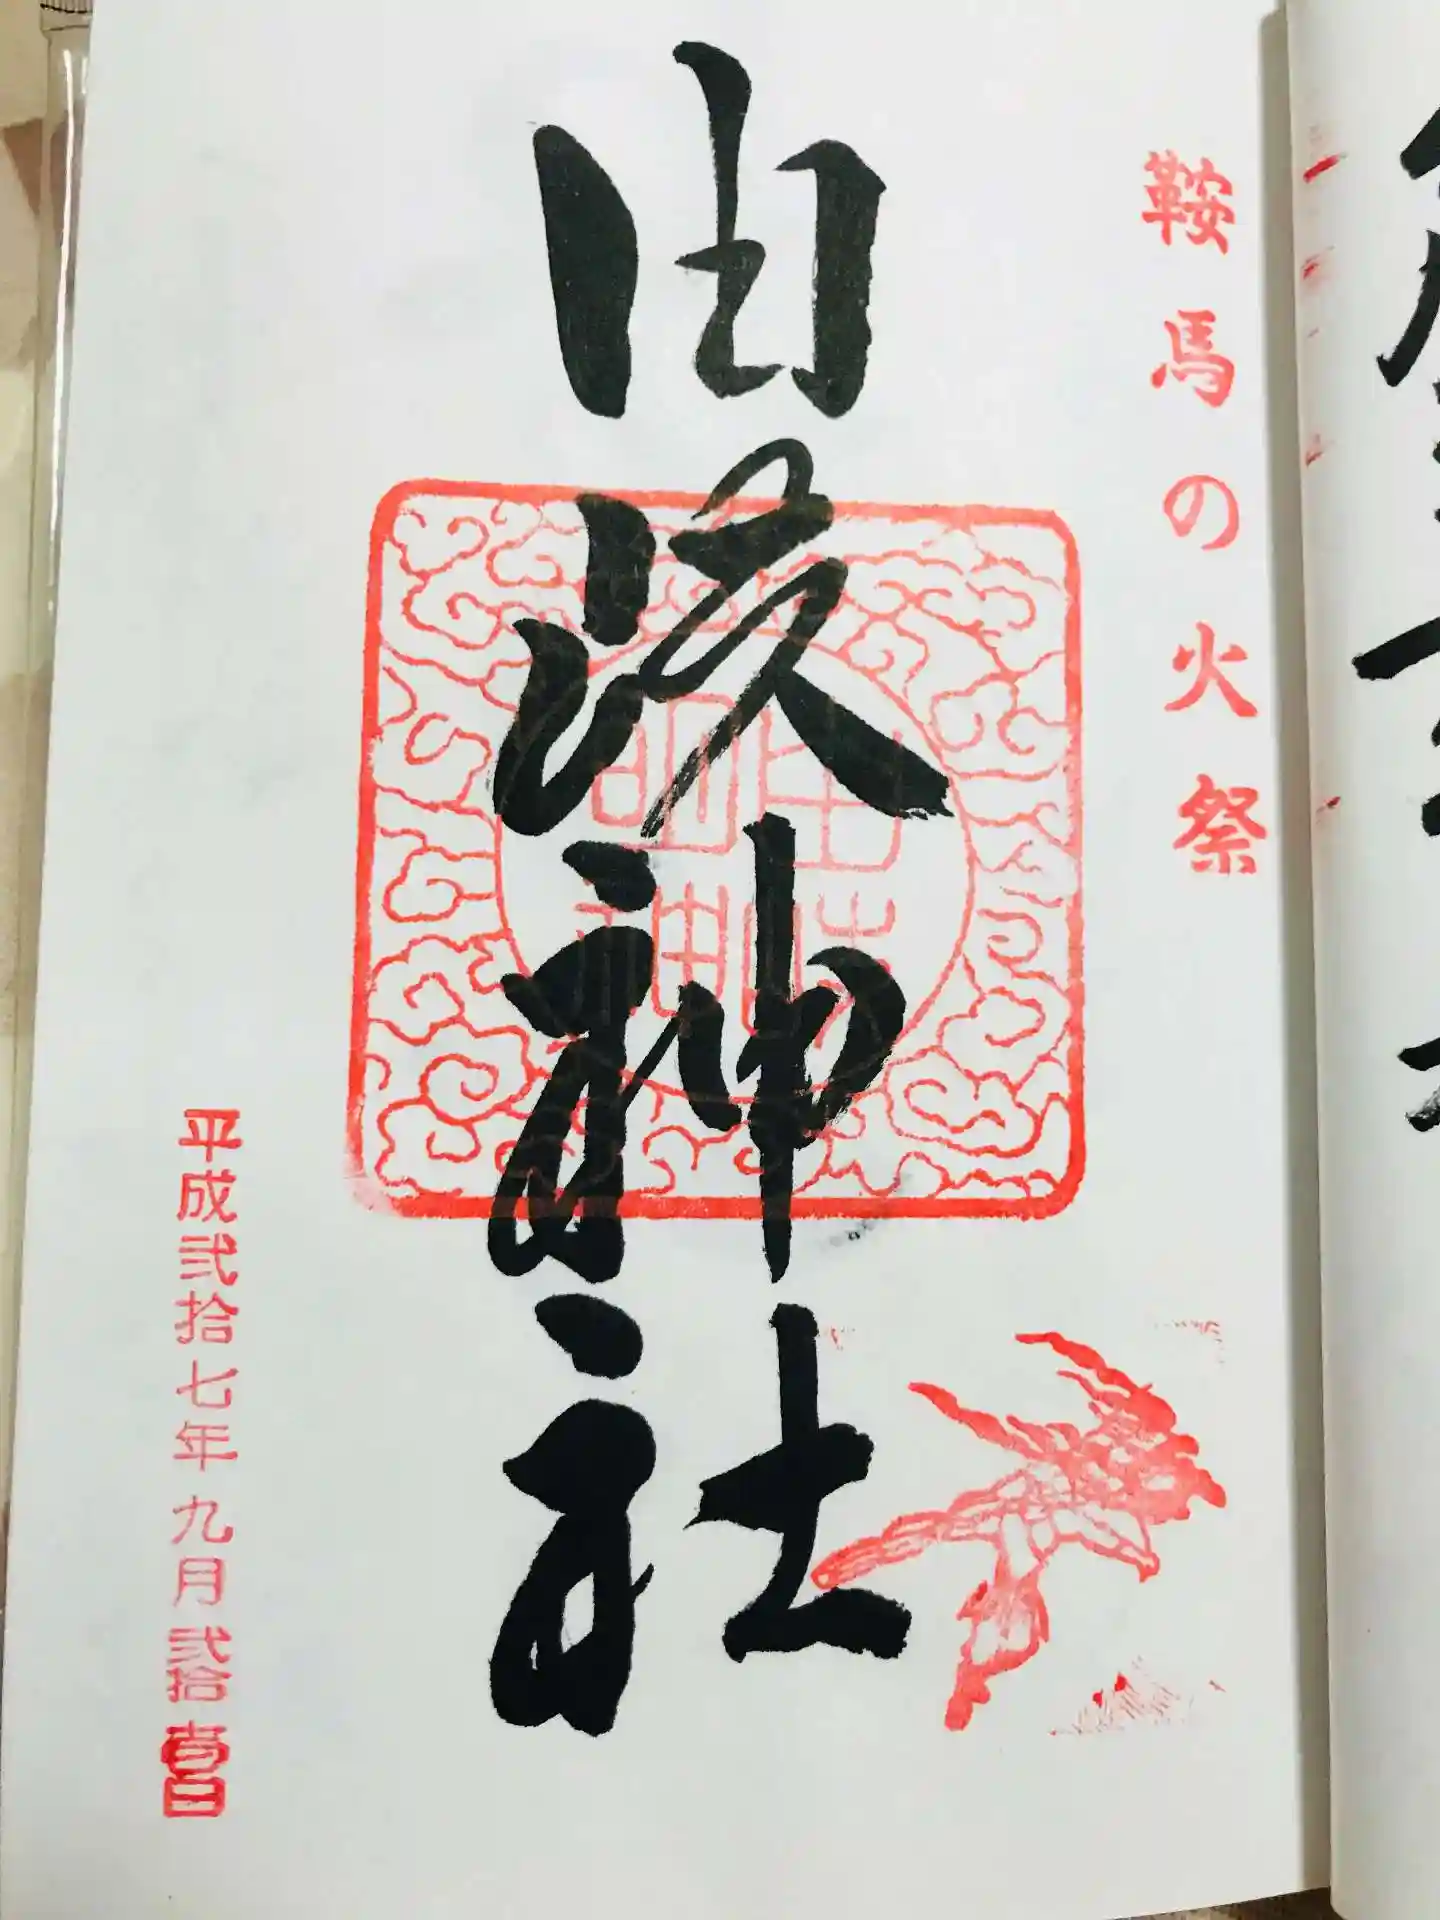 鞍馬の火祭
由岐神社
平成弐拾七年九月弐拾壱日